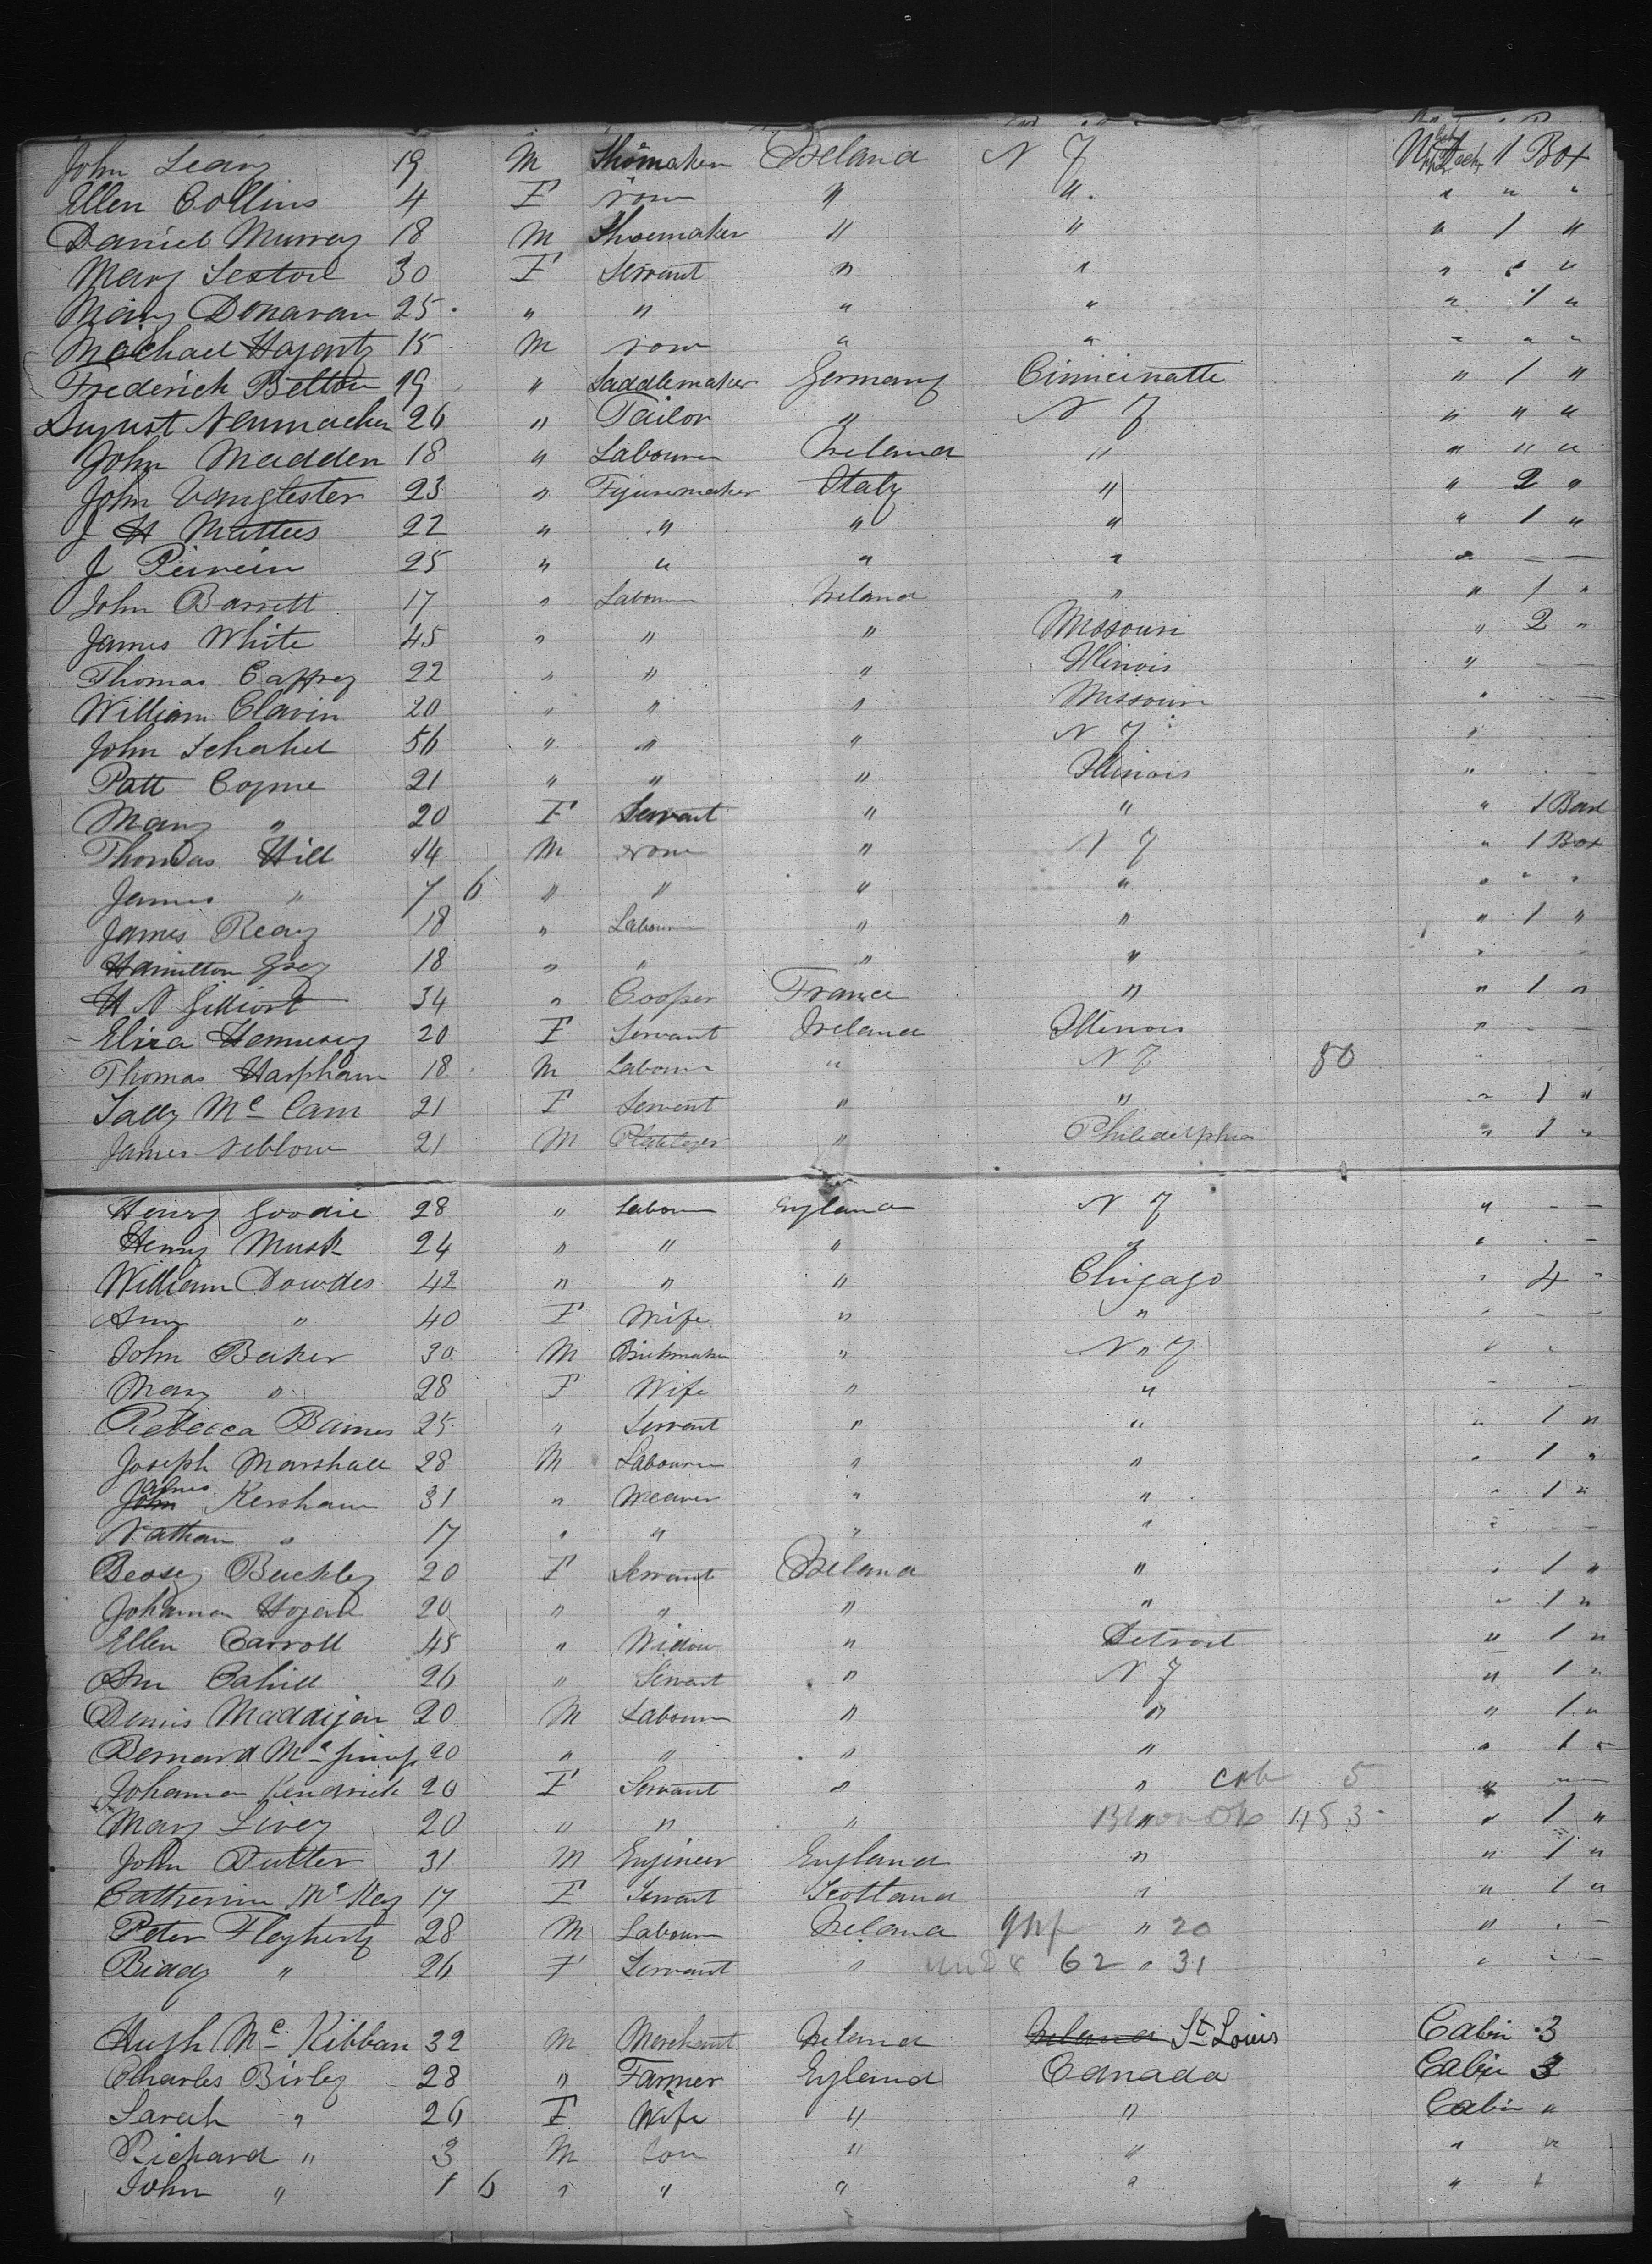 John Leary 19 M Shomaker Ireland N Y 1 Box
Ellen Collins 4 F " " " " "
Daniel Murray 18 M Shoemaker " " " 1 "
Mary Sexton 30 F Servant " " " " "
Mary Donavan 25 " " " " " 1 "
Michael Hagerty 15 M " " " " "
Frederick Belton 19 " Saddlemaker Germany Cinncinatte " 1 "
August Neumacher 26 " Tailor " N Y " " "
John Madden 18 " Labourer Ireland " " " "
John Vanglester 23 " Figuremaker Italy " " 2 "
J H Mattus 22 " " " " " 1 "
J 25 " " " " " — —
John Barrett 17 " Labourer Ireland " " 1 "
James White 45 " " " Missouri " 2 "
Thomas Caffrey 22 " " " Illinois " — —
William Clavin 20 " " " Missouri " —
John 56 " " " N Y "
Patt Coyne 21 " " " Illinois " —
Mary " 20 F Servant " " " 1
Thomas Hill 14 M " N Y " 1 Box
James " 7 6 " " " " " " "
James Reay 18 " Labourer " " " 1 "
Hamilton Grey 18 " " " " " — —
H N 34 " Cooper France " " 1 "
Eliza Hennesey 20 F Servant Ireland Illinois " — —
Thomas Harpham 18 M Labourer " N Y 80 "
Sally Mc Cann 21 F Servant " " " 1 "
James 21 M Platelayer " Philidelphia " 1 "
Henry Goodie 28 " Labourer England N Y " — —
Henry Musk 24 " " " " " — —
William Dowdes 42 " " " Chigago " 4 "
Ann " 40 F Wife " " " — —
John Baker 30 M Brickmaker " N " Y " "
Mary " 28 F Wife " " — —
Rebecca Baines 25 " Servant " " " 1 "
Joseph Marshall 28 M Labourer " " " 1 "
James Kershaw 31 " Weaver " " " 1 "
Nathan " 17 " " " " " — —
Buckley 20 F Servant Ireland " " 1 "
Johanna Hogan 20 " " " " " 1 "
Ellen Carroll 45 " Widow " Detroit " 1 "
Ann Cahill 26 " Servant " N Y " 1 "
Denis Maddigan 20 M Labourer " " " 1 "
Bernard Mc 20 " " " " " 1 "
Johanna Kendrick 20 F Servant " " cab 5 " — —
Mary Livey 20 " " " " 453 " 1 "
John Dutter 31 M Engineer England " " 1 "
Catherine Mc Key 17 F Servant Scotland " " 1 "
Peter Flagherty 28 M Labourer Ireland " 20 " — —
Biddy " 26 F Servant " und 62 " 31 " — —
Hugh Mc Kibban 32 M Merchant Ireland Ireland St Louis Cabin 3
Charles Birley 28 " Farmer England Canada Cabin 3
Sarah " 26 F Wife " " Cabin "
Richard " 3 M Son " " " "
John " 1 6 " " " " " "